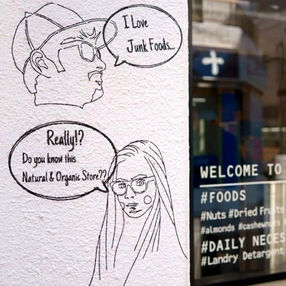 I Love
Junk Foods...
Really!?
Do you know this
Natural & Organic Store??
WELCOME TO
#FOODS
#Nuts #Dried Fruits
#almonds #cashewnuts
#DAILY NECES
#Landry Detergent